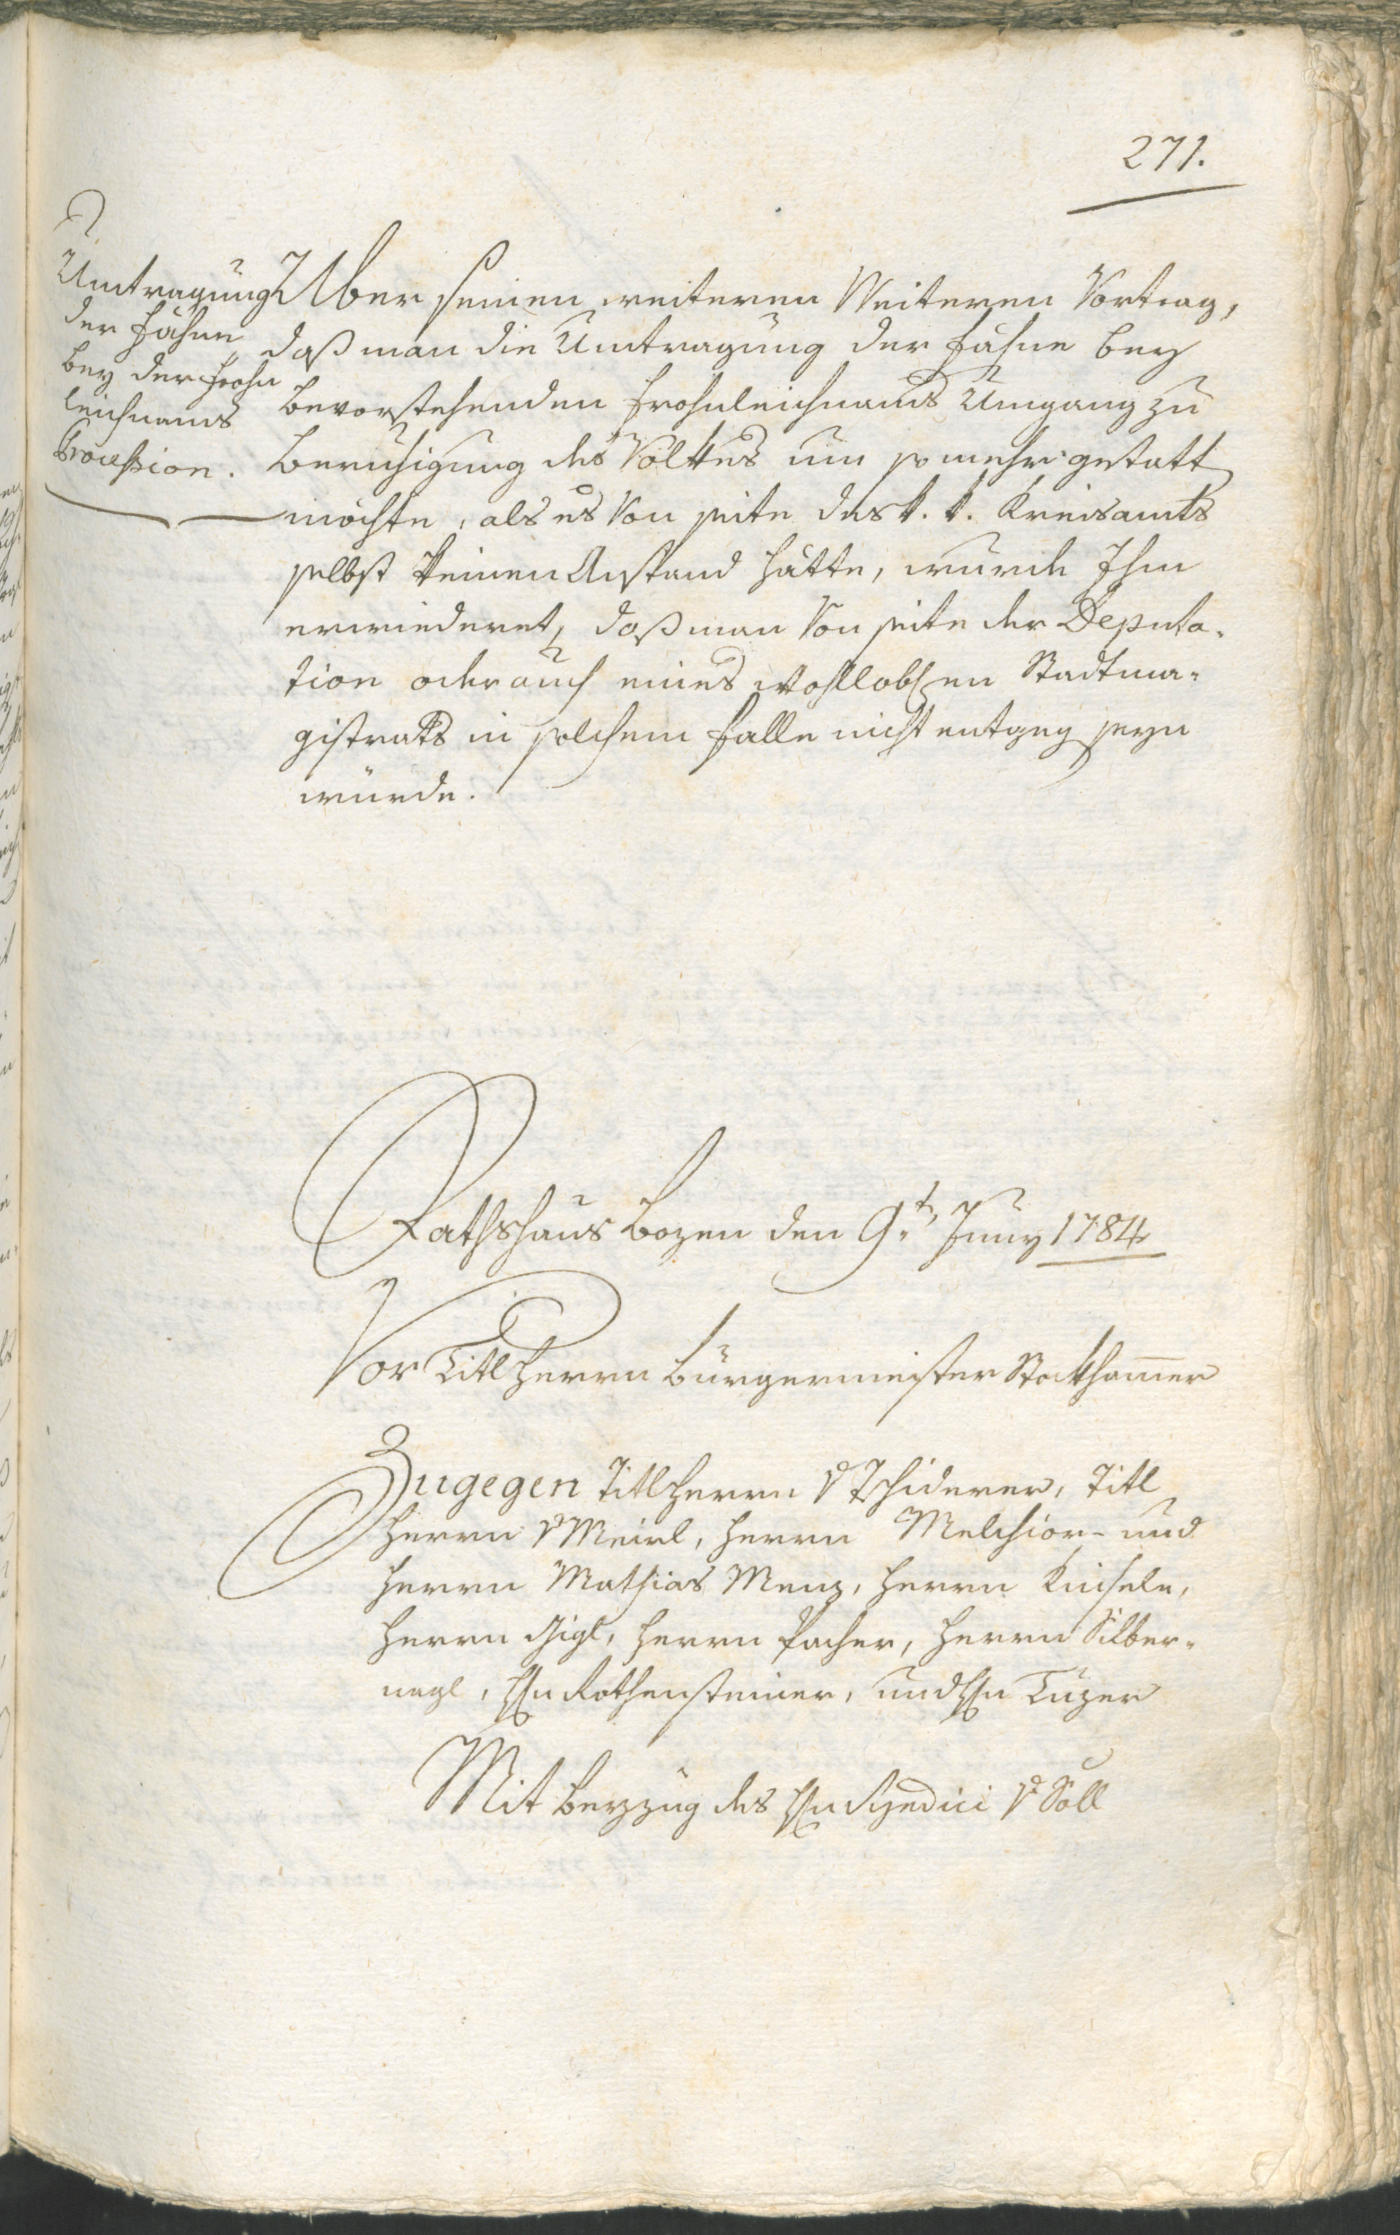 271.
Umtragung
der Fahne
bey der Frohn
leichnams
Procession.
Uber seinen weiteren Weiteren Vortrag,
daß man die Umtragung der Fahne bey
bevorstehenden Frohnleichnams Umgang zu
Beruhigung des Volkes um so mehr gestatt
möchte, als es von seite des k. k. Kreisamts
selbst keinen Anstand hätte, wurde Ihm
erwiederet, daß man von seite der Deputa-
tion oder auch eines wohlloben Stadtma-
gistrats in solchem Falle nicht entgeg seyn
würde.
Rathshaus Bozen den 9.t Juny 1784
Vor Titl Herrn Bürgermeister Stockhamer
Zugegen Titl Herrn v Tschiderer, Titl
Herrn v Meirl, Herrn Melchior- und
Herrn Mathias Menz, Herrn Kinsele,
Herrn Gigl, Herrn Pacher, Herrn Silber-
nagl, Hn Rottensteiner, und Hn Tuzer
Mit Beyzug des Hn Syndici v Söll